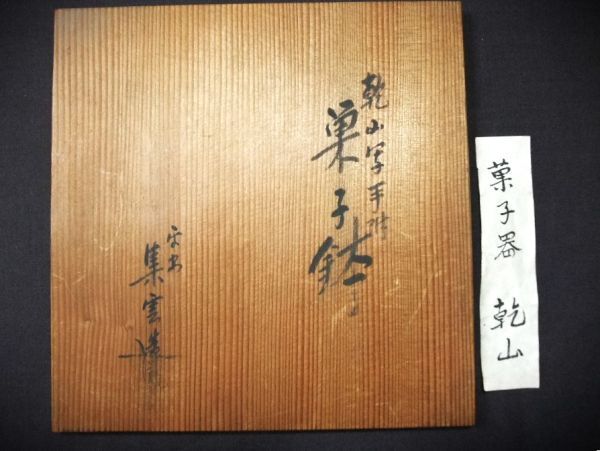 乾山写手附
菓子鉢
平安
集雲造
菓子器 乾山